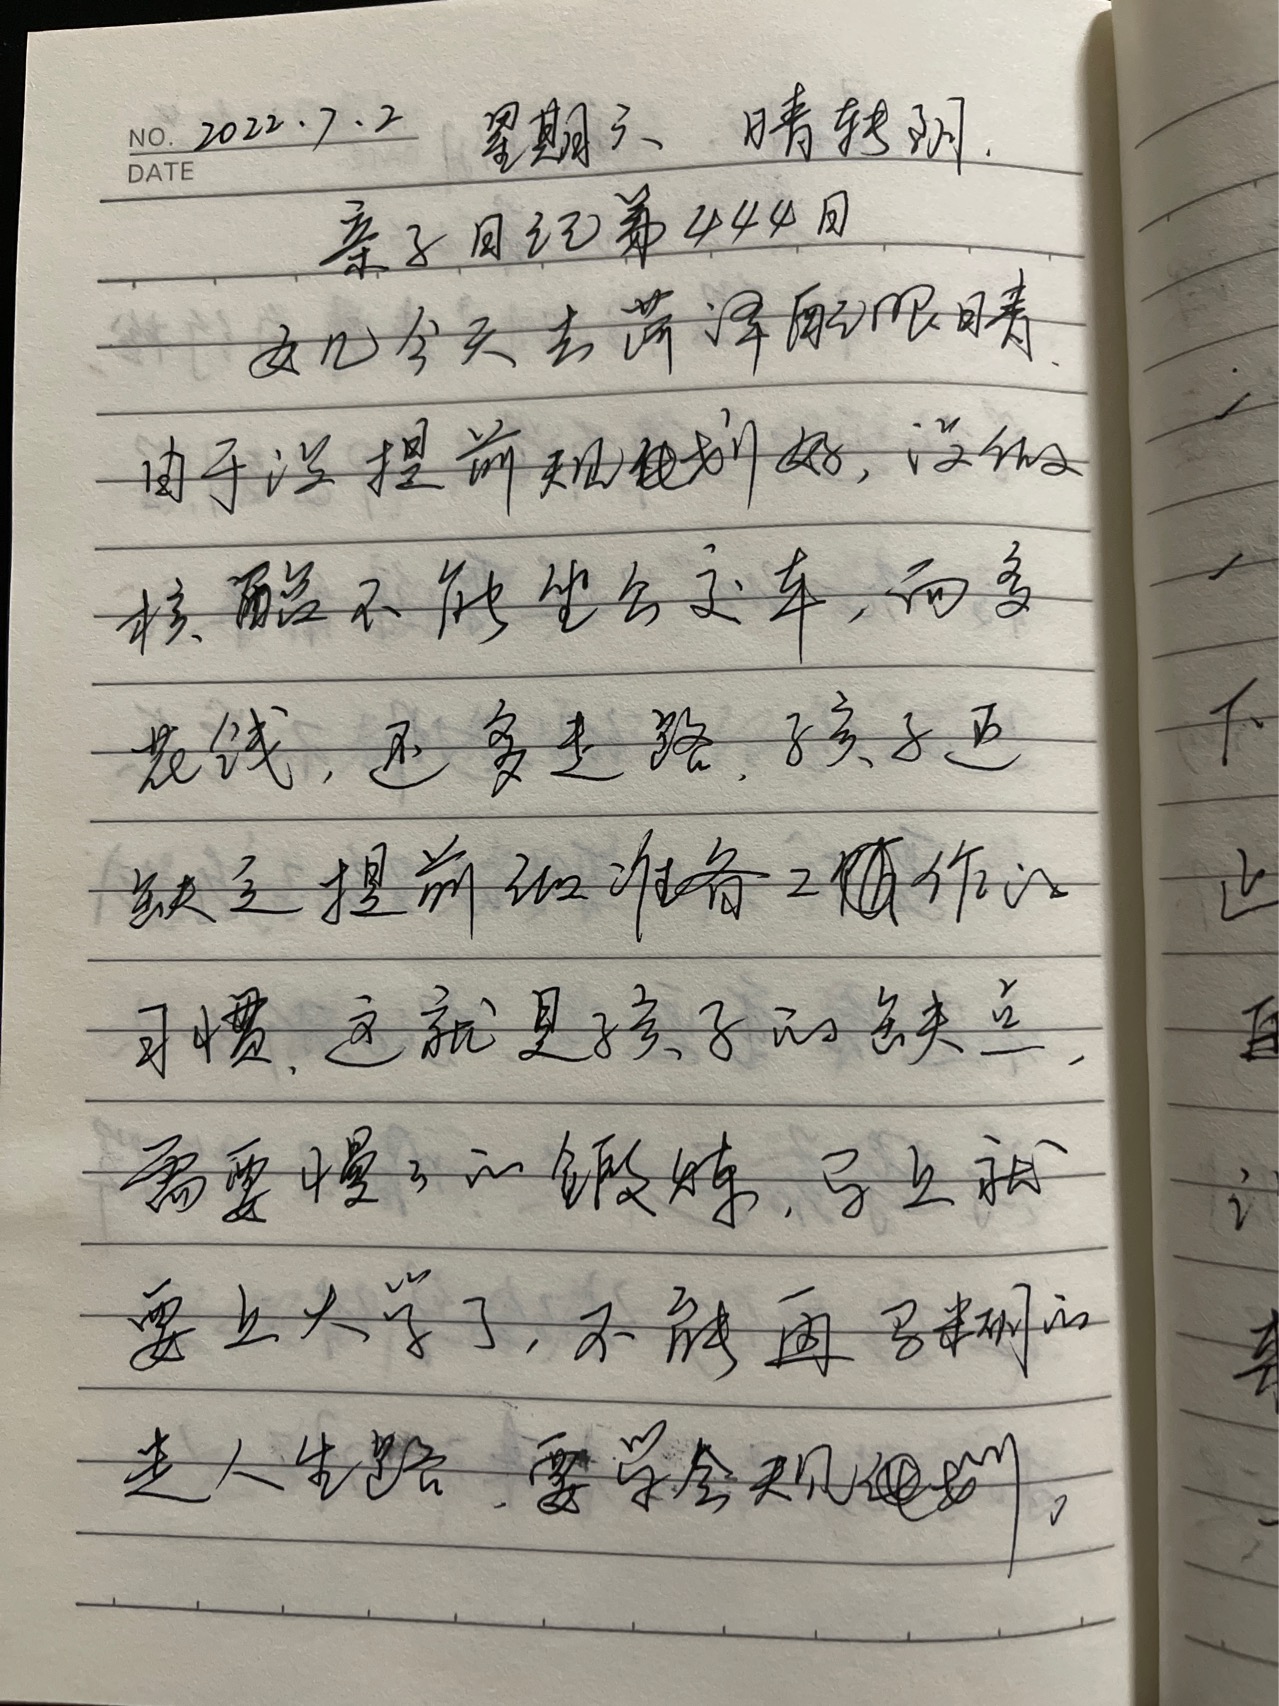 NO. 2022.7.2 星期六 晴转阴.
DATE
亲子日记第444日
女儿今天去菏泽配眼睛.
由于没提前规划好,没做
核酸不能坐公交车,而多
花钱,还多走路.孩子还
缺乏提前做准备工作的
习惯.这就是孩子的缺点,
需要慢々的锻炼,马上就
要上大学了,不能再马糊的
走人生路.要学会规划,
下
止
直